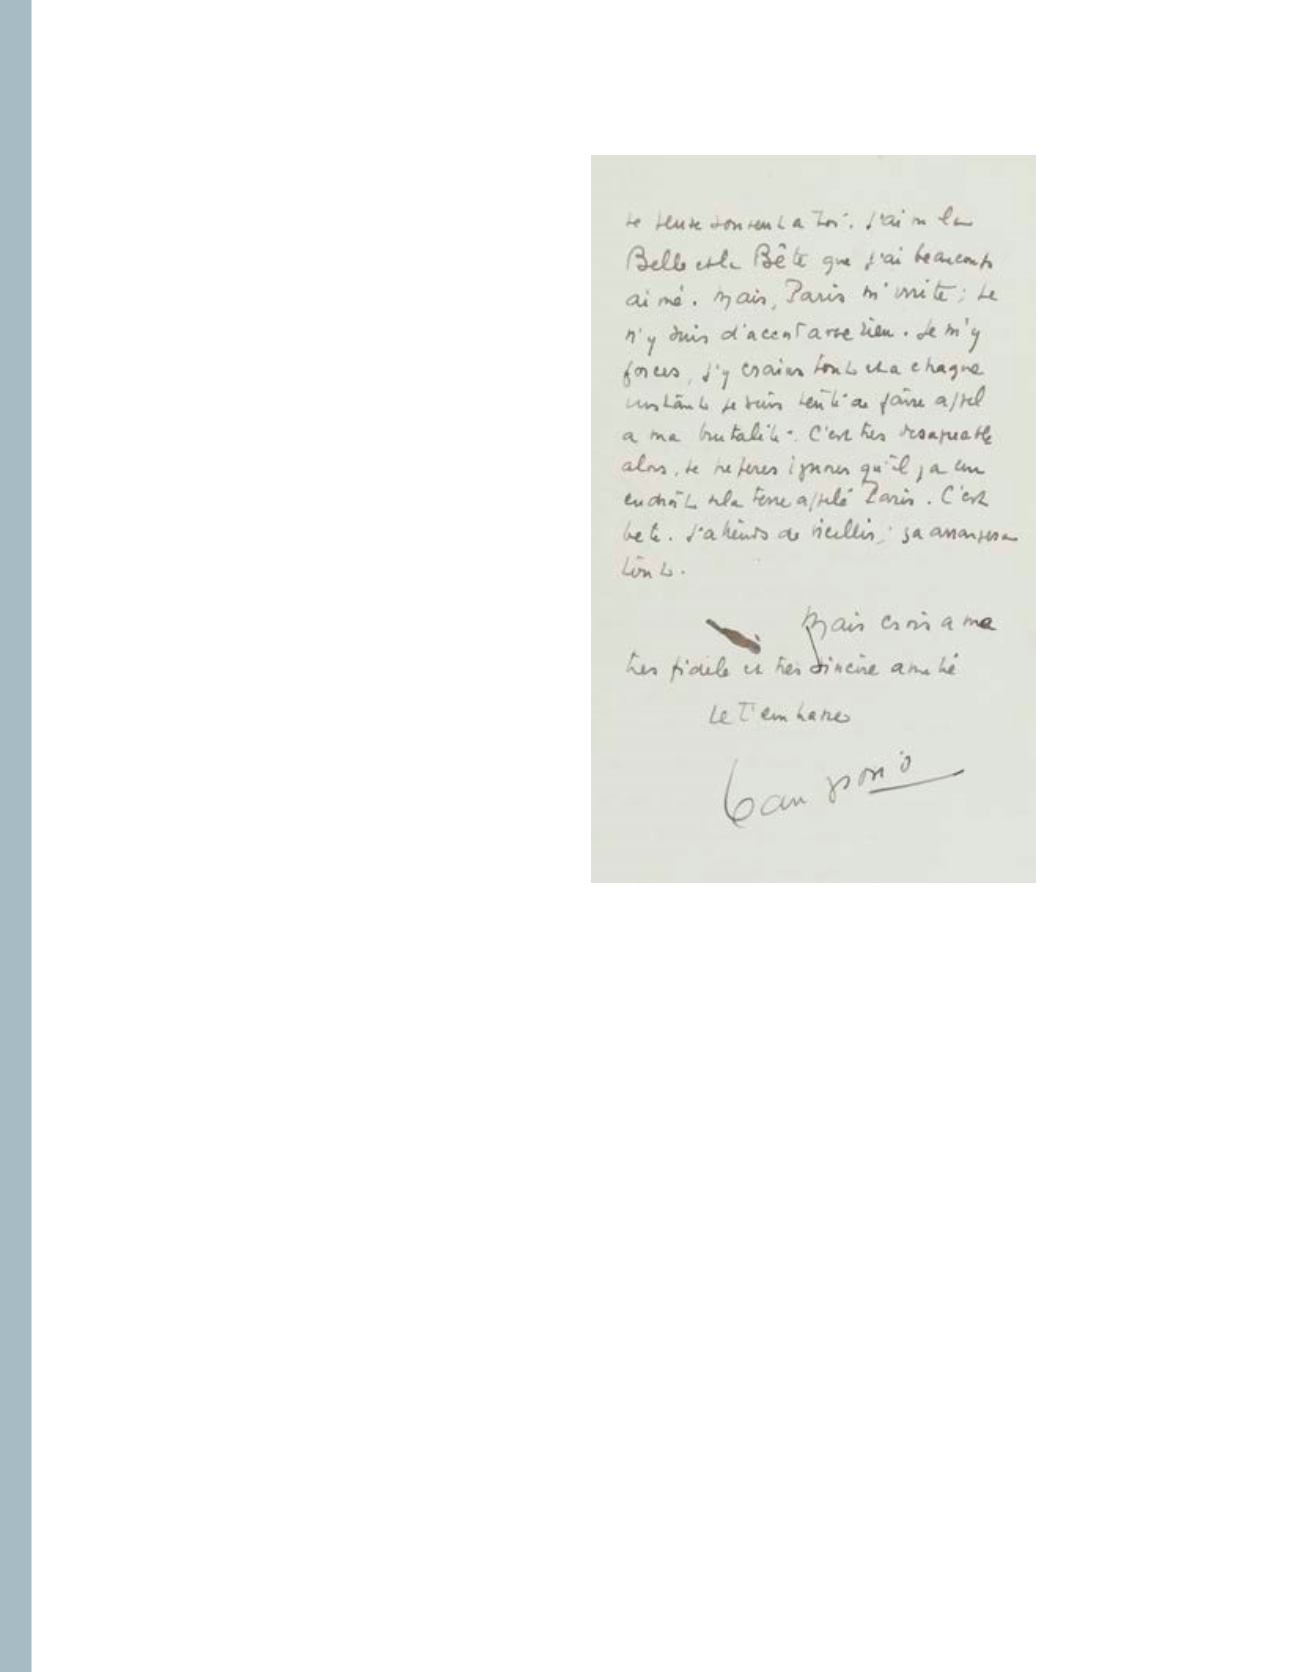 Je pense souvent a toi. J'ai vu la
Belle et la Bête que j'ai beaucoup
aimé. Mais, Paris m'irrite ; je
n'y suis d'accord avec rien. Je m'y
forces, j'y crains tout et a chaque
instant je suis tenté de faire appel
a ma brutalité. C'est tres desagreable
alors, je preferes ignorer qu'il y a un
endroit sur la terre appelé Paris. C'est
bete. J'attends de vieillir ; ça arrangera
tout.
Mais crois a ma
tres fidele et tres sincère amitié
Je t'embrasse
Jean Giono